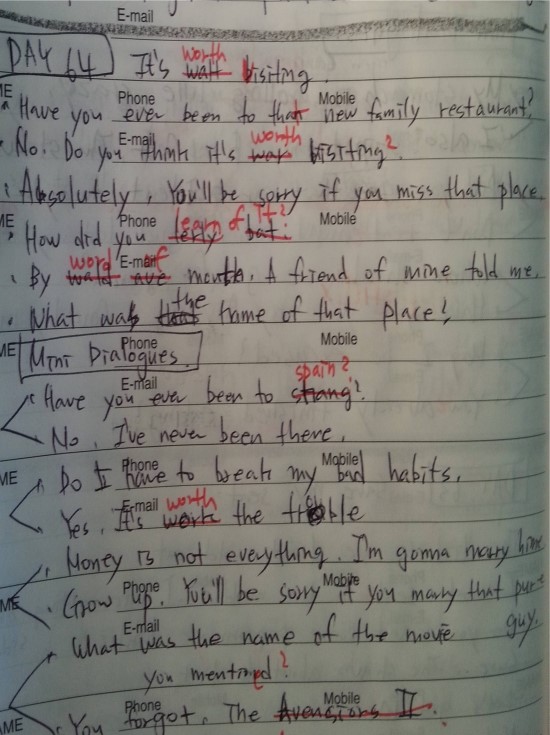 E-mail
DAY 64 It's watt worth visiting.
ME Phone Mobile
Have you ever been to that new family restaurant?
E-mail
No. Do you think it's war worth visiting?
Absolutely, You'll be sorry if you miss that place.
ME Phone Mobile
How did you learn of it?
E-mail
By word of mouth. A friend of mine told me.
What was the name of that place?
ME Phone Mobile
Mini Dialogues.
E-mail
Have you ever been to strang spain?
No, I've never been there.
ME Phone Mobile
Do I have to break my bad habits.
E-mail
Yes. It's work worth the trouble
Money is not everything. I'm gonna marry him.
ME Phone Mobile
Grow up. You'll be sorry if you marry that guy.
E-mail
What was the name of the movie
you mentioned?
AME Phone Mobile
You forgot. The Avengiors II.